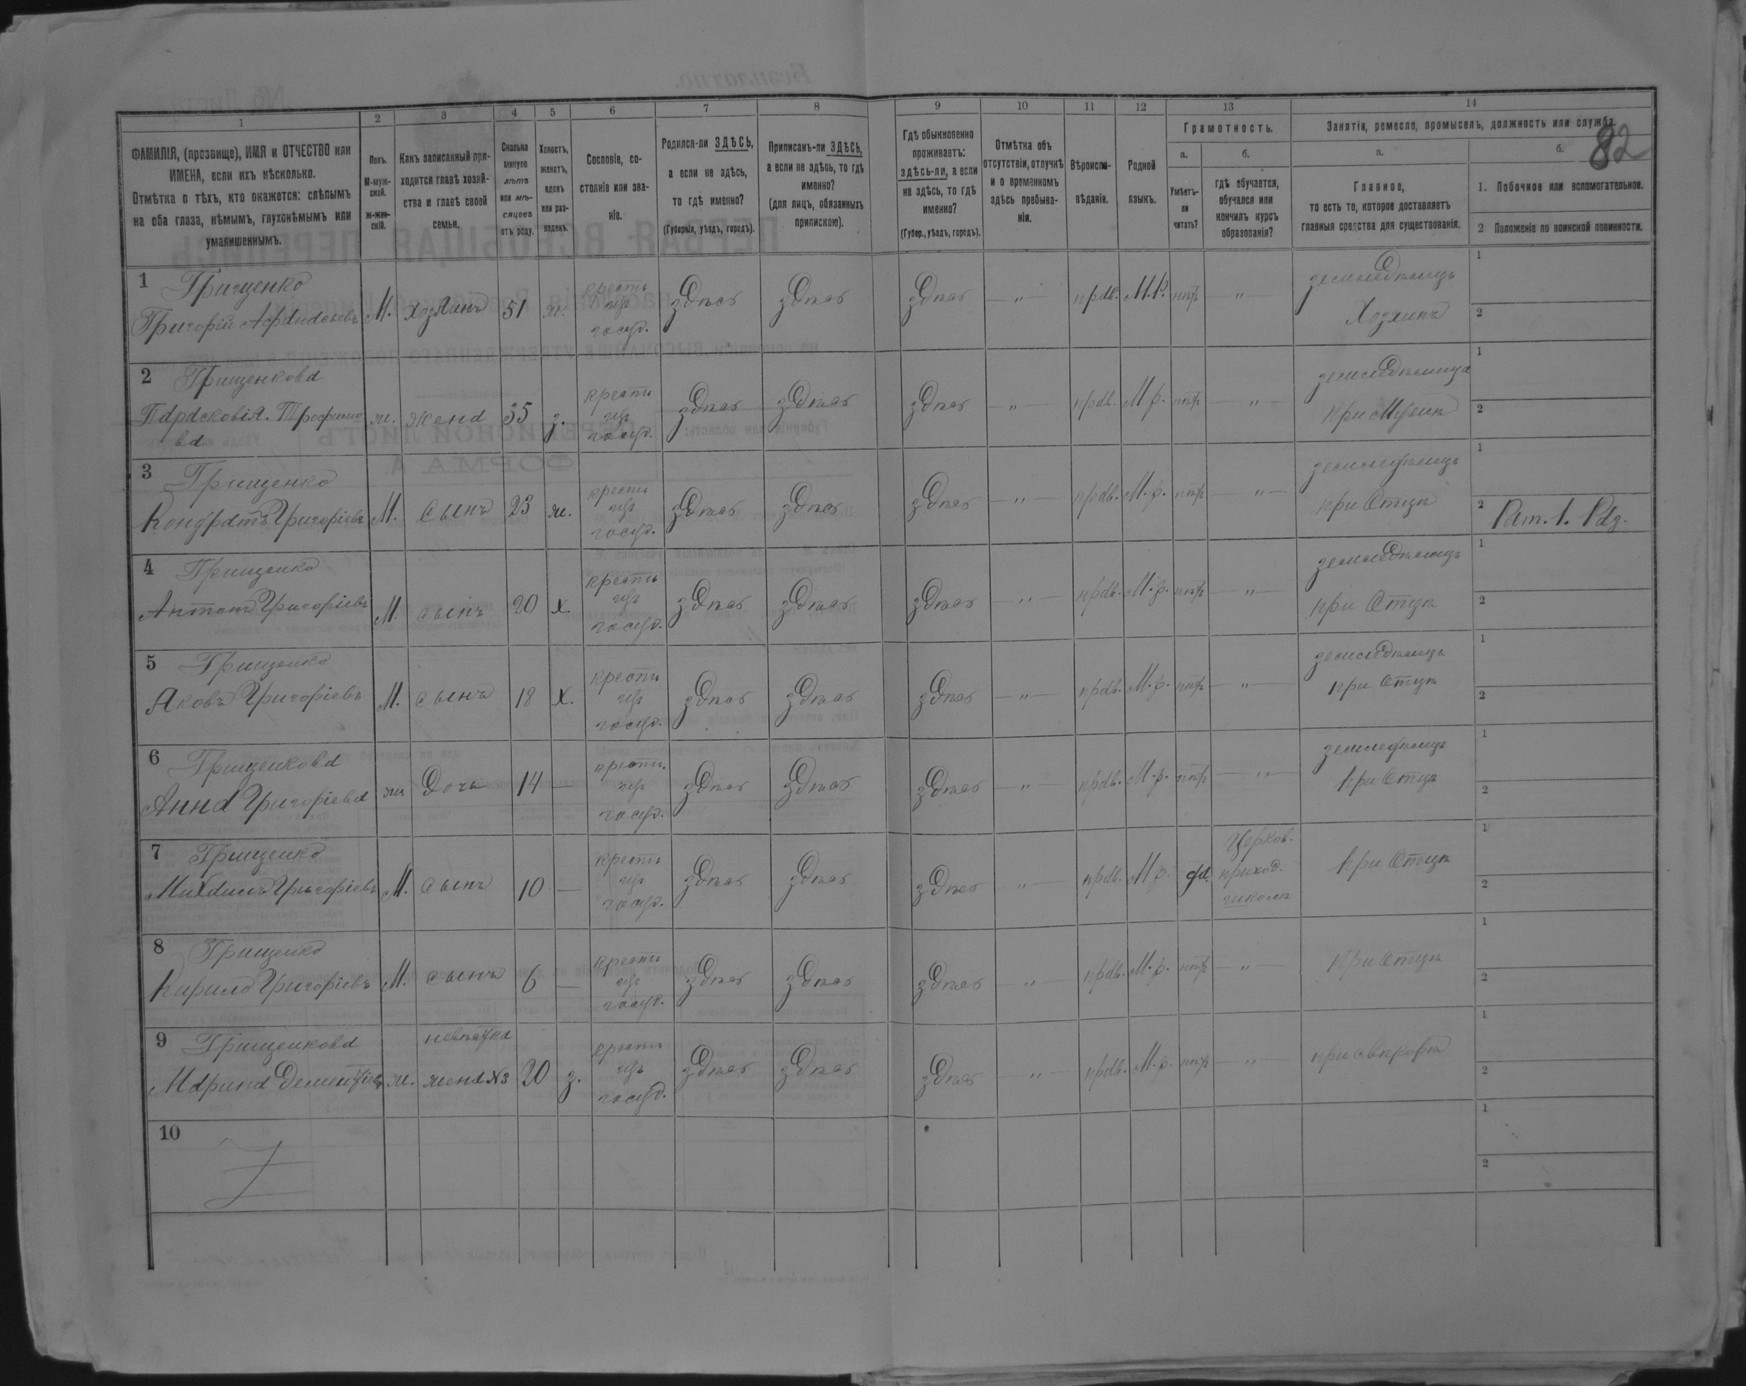 1 2 3 4 5 6 7 8 9 10 11 12 13 14
82
ФАМИЛІЯ, (прозвище), ИМЯ и ОТЧЕСТВО или
ИМЕНА, если ихъ нѣсколько.
Отмѣтка о тѣхъ, кто окажется: слѣпымъ
на оба глаза, нѣмымъ, глухонѣмымъ или
умалишеннымъ.
Полъ.
М-муж-
ской.
ж-жен-
скій.
Какъ записанный при-
ходится главѣ хозяй-
ства и главѣ своей
семьи.
Сколько
минуло
лѣтъ
или мѣ-
сяцевъ
отъ роду.
Холостъ,
женатъ,
вдовъ
или раз-
веденъ.
Сословіе, со-
стояніе или зва-
ніе.
Родился-ли ЗДѢСЬ,
а если не здѣсь,
то гдѣ именно?
(Губернія, уѣздъ, городъ).
Приписанъ-ли ЗДѢСЬ,
а если не здѣсь, то гдѣ
именно?
(для лицъ, обязанныхъ
припискою).
Гдѣ обыкновенно
проживаетъ:
здѣсь-ли, а если
не здѣсь, то гдѣ
именно?
(Губер., уѣздъ, городъ).
Отмѣтка объ
отсутствіи, отлучкѣ
и о временномъ
здѣсь пребыва-
ніи.
Вѣроиспо-
вѣданіе.
Родной
языкъ.
Грамотность.
а.
Умѣетъ-
ли
читать?
б.
гдѣ обучается,
обучался или
кончилъ курсъ
образованія?
Занятіе, ремесло, промыселъ, должность или служба.
а.
Главное,
то есть то, которое доставляетъ
главныя средства для существованія.
б.
1. Побочное или вспомогательное.
2 Положеніе по воинской повинности.
1 Грищенко
Григорій М. Хозяинъ 51 ж. крестьян. изъ госуд. здѣсь здѣсь здѣсь — „ — прав. М.Р. нѣтъ — „ — земледѣлецъ
Хозяинъ
1
2
2 Грищенкова
Парасковія Трофимо
ва ж. жена 35 з. крестьян. изъ госуд. здѣсь здѣсь здѣсь — „ — прав. М.р. нѣтъ — „ — земледѣлица
при Мужѣ
1
2
3 Грищенко
Кондратъ Григоріевъ М. сынъ 23 ж. крестьян. изъ госуд. здѣсь здѣсь здѣсь — „ — прав. М.р. нѣтъ — „ — земледѣлецъ
при Отцѣ
1
2 Рат. 1. Раз.
4 Грищенко
Антонъ Григоріевъ М. сынъ 20 х. крестьян. изъ госуд. здѣсь здѣсь здѣсь — „ — прав. М.р. нѣтъ — „ — земледѣлецъ
при Отцѣ
1
2
5 Грищенко
Яковъ Григоріевъ М. сынъ 18 х. крестьян. изъ госуд. здѣсь здѣсь здѣсь — „ — прав. М.р. нѣтъ — „ — земледѣлецъ
при Отцѣ
1
2
6 Грищенкова
Анна Григоріева ж. Дочь 14 — крестьян. изъ госуд. здѣсь здѣсь здѣсь — „ — прав. М.р. нѣтъ — „ — земледѣлецъ
при Отцѣ
1
2
7 Грищенко
Михаилъ Григоріевъ М. сынъ 10 — крестьян. изъ госуд. здѣсь здѣсь здѣсь — „ — прав. М.р. да Церков.
приход.
школѣ
при Отцѣ
1
2
8 Грищенко
Кирило Григоріевъ М. сынъ 6 — крестьян. изъ госуд. здѣсь здѣсь здѣсь — „ — прав. М.р. нѣтъ — „ — при Отцѣ
1
2
9 Грищенкова
Марина ж. невѣстка
жена №3 20 з. крестьян. изъ госуд. здѣсь здѣсь здѣсь — „ — прав. М.р. нѣтъ — „ — при свекорѣ
1
2
10
1
2